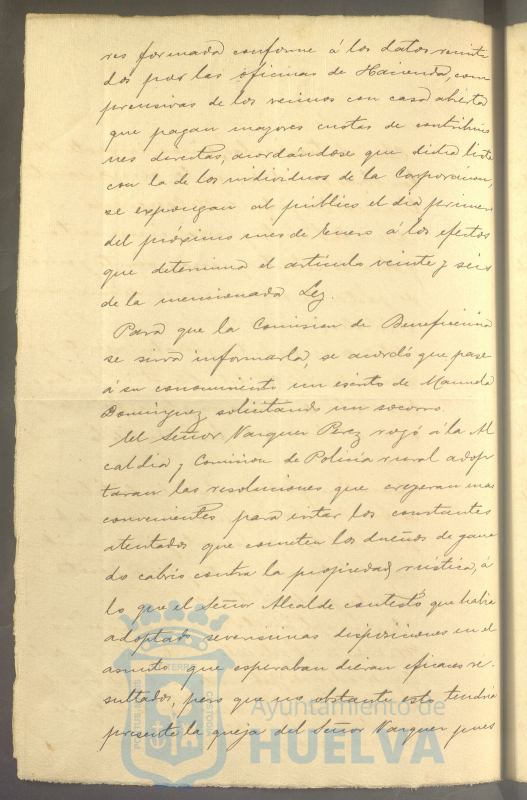 res formada conforme á los datos remiti
dos por las oficinas de Hacienda, com
prensivas de los vecinos con casa abierta
que pagan mayores cuotas de contribucio
nes directas, acordándose que dicha lista
con la de los individuos de la Corporacion,
se expongan al público el dia primero
del próximo mes de Enero á los efectos
que determina el artículo veinte y seis
de la mencionada Ley.
Para que la Comision de Beneficencia
se sirva informarla, se acordó que pase
á su conocimiento un escrito de Manuela
Dominguez solicitando un socorro.
El Señor Vazquez Perez rogó á la Al
caldia y Comision de Policía rural adop
taran las resoluciones que creyeran mas
convenientes para evitar los constantes
atentados que cometen los dueños de gana
do cabrio contra la propiedad rústica, á
lo que el Señor Alcalde contestó que habia
adoptado severisimas disposiciones en el
asunto que esperaban dieran eficaces re-
sultados, pero que no obstante esto tendria
presente la queja del Señor Vazquez pues
Ayuntamiento de
HUELVA